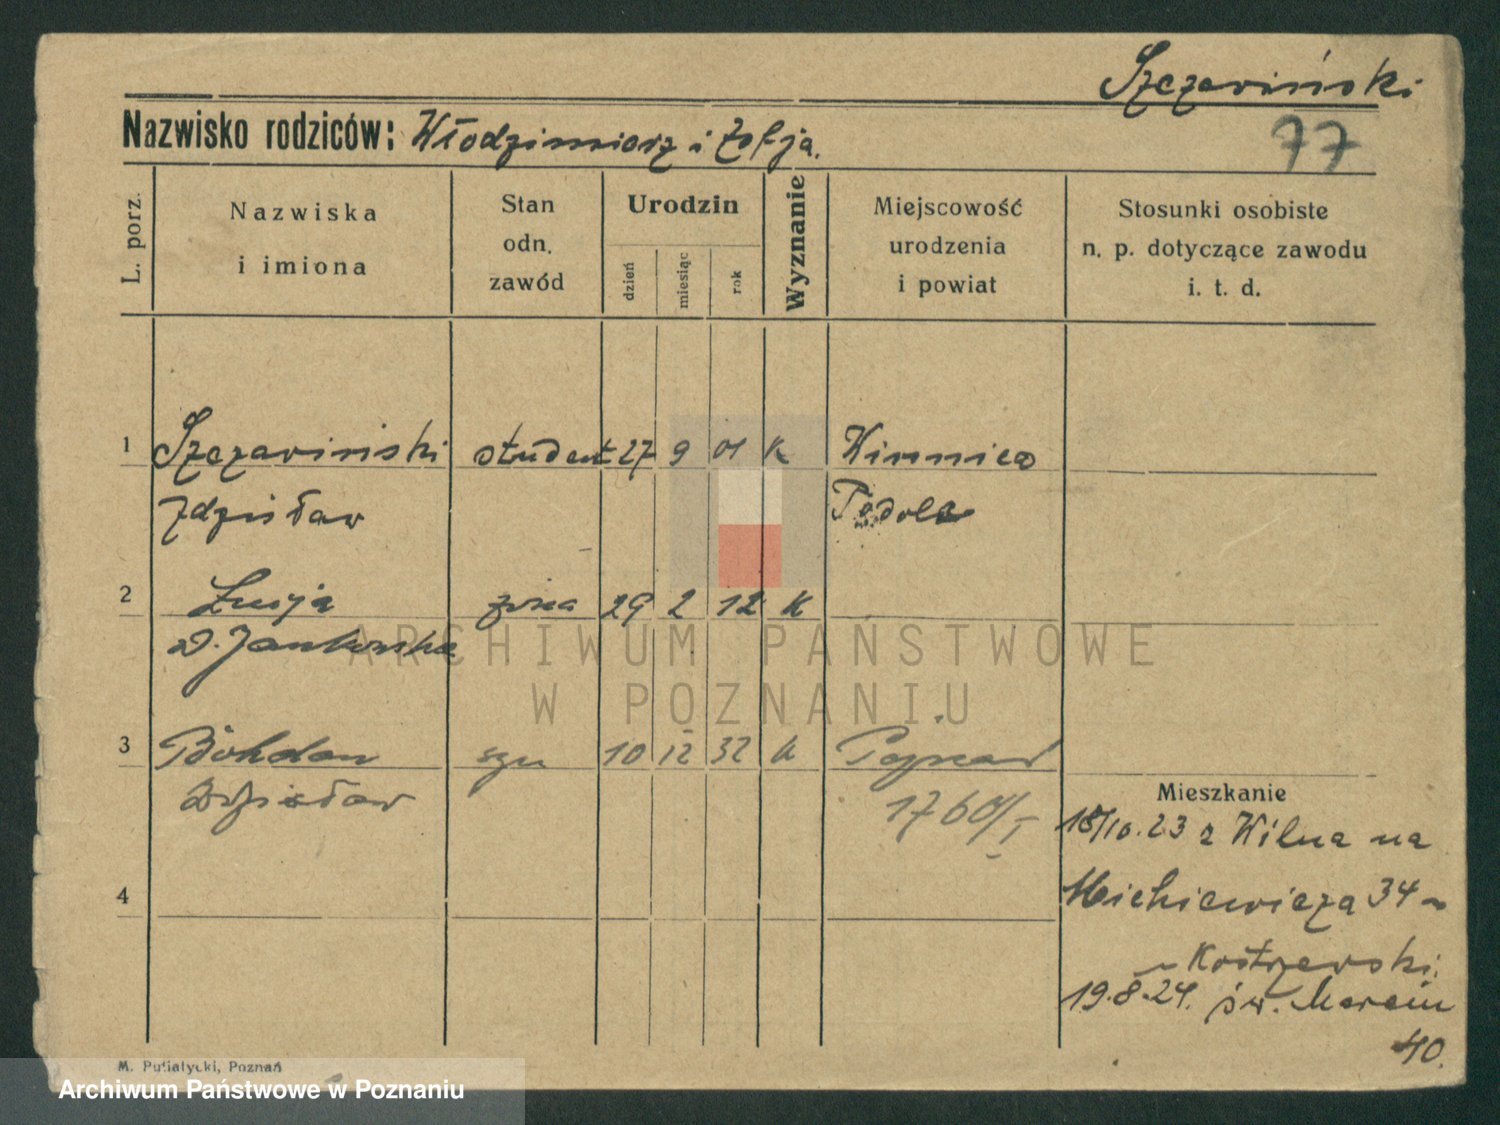 Szczawiński
Nazwisko rodziców: Włodzimierz i Zofja.
77
L. porz.
Nazwiska
i imiona
Stan
odn.
zawód
Urodzin
dzień
miesiąc
rok
Wyznanie
Miejscowość
urodzenia
i powiat
Stosunki osobiste
n. p. dotyczące zawodu
i. t. d.
1 Szczawiński student 27 9 01 K Winnica
Zdzisław Podole
2 Łucja żona 29 2 12 K
D. Jankowska
3 Bohdan syn 10 12 32 k Poznań
Zdzisław 1760/I
4
Mieszkanie
18/10.23 z Wilna na
Mickiewicza 34
Kostrzewski
19.8.24. św. Marcin
40.
M. Putiatycki, Poznań
ARCHIWUM PAŃSTWOWE
W POZNANIU
Archiwum Państwowe w Poznaniu